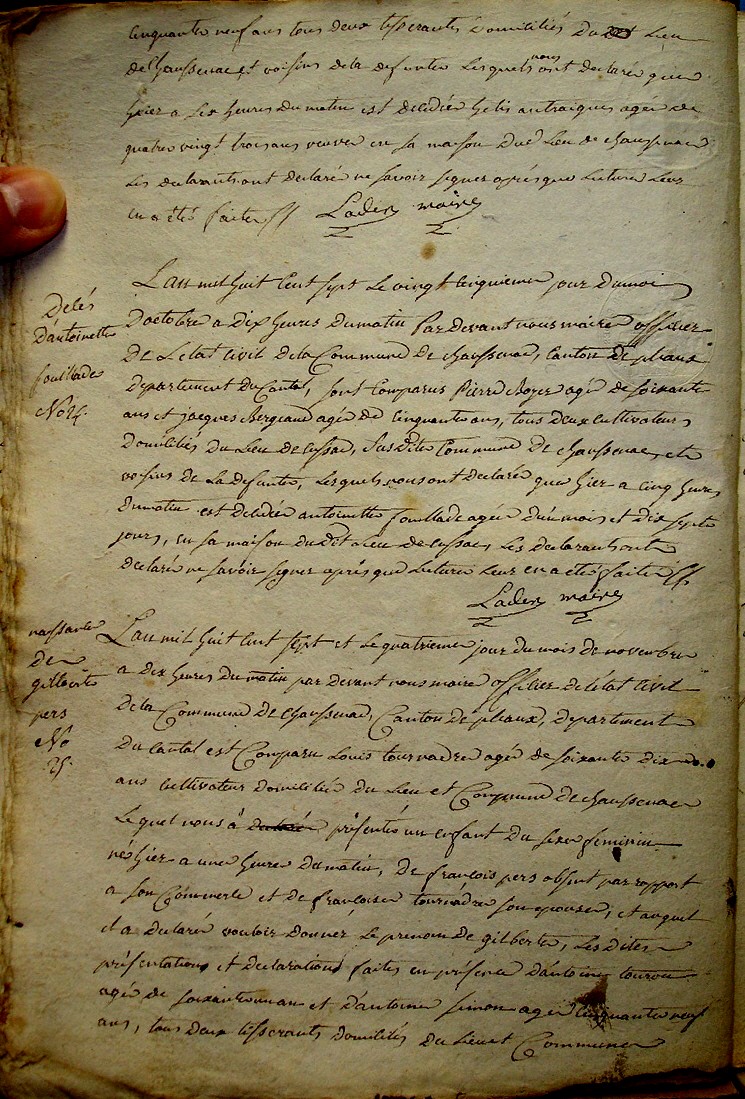 cinquante neuf ans tous deux tisserants domiciliés du dit Lieu
de chaussenac et voisins de la defunte Lesquels nous ont declaré que
hier a six heures du matin est décédée helis antraigues agée de
quatre vingt trois ans veuve en sa maison dud Lieu de chaussenac
Les declarants ont déclaré ne savoir signer après que Lecture Leur
en a été faite
Laden maire
L'an mil huit cent sept le vingt cinquieme jour du moi
Décés
d'antoinette
fouillade
No 24.
D'octobre a Dix heures du matin Par devant nous maire officier
de L'etat civil de la Commune de chaussenac, canton de pleaux
departement du Cantal, sont Comparus Pierre Boyer agé de soixante
ans et jacques Bergeaud agé de cinquante ans, tous deux cultivateurs
domiciliés du Lieu de cussac, susdite Commune de chaussenac, et
voisins de La defunte, Lesquels nous ont declaré que hier a cinq heures
du matin est décédée antoinette fouillade agée d'un mois et dix sept
jours, en sa maison du dit Lieu de cussac, Les declarants ont
declaré ne savoir signer après que Lecture Leur en a été faite
Laden maire
naissance
de
gilberte
pers
No
25.
L'an mil huit cent sept et le quatrieme jour du mois de novembre
a dix heures du matin par devant nous maire officier de l'état civil
de la Commune de chaussenac, Canton de pleaux, departement
du cantal est Comparu Louis tournadre agé de soixante dix
ans cultivateur domicilié du Lieu et Commune de chaussenac
Lequel nous à présenté un enfant du sexe feminin
né hier a une heure du matin, de françois pers absent par rapport
a son Commerce et de françoise tournadre son epouse, et auquel
il a declaré vouloir donner le prenom de gilberte, Les dites
présentations et declarations faites en présence d'antoine
agé de soixante un an et d'antoine simon agé cinquante neuf
ans, tous deux tisserants domiciliés du Lieu et Commune